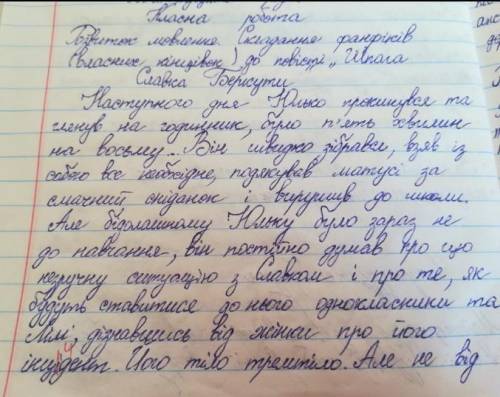 Класна робота
Розвиток мовлення. Складання фанфіків
(власних кінцівок) до повісті „Шпага
Славка Беркути
Наступного дня Юлько прокинувся та
глянув на годинник, було п'ять хвилин
на восьму. Він швидко зібрався, взяв із
собою все необхідне, подякував матусі за
смачний сніданок і вирушив до школи.
Але бідолашному Юльку було зараз не
до навчання, він постійно думав про цю
незручну ситуацію з Славком і про те, як
будуть ставитися до нього однокласники та
Лілі, дізнавшись від жінки про його
інцидент. Його тіло тремтіло. Але не від